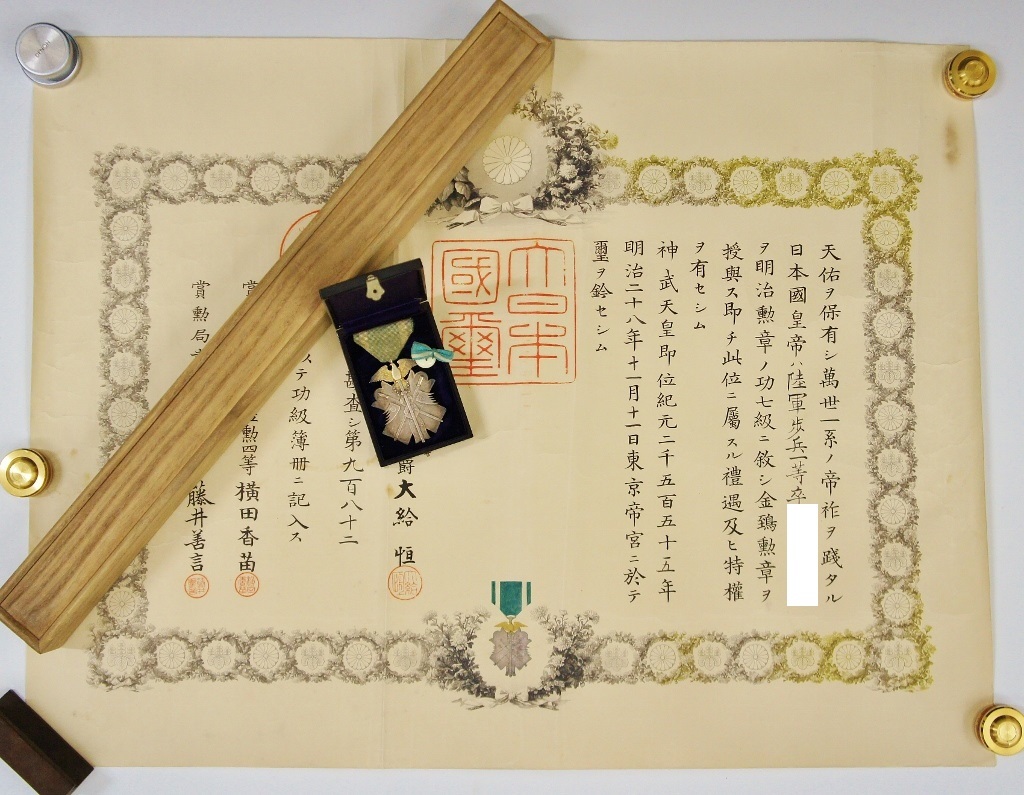 天佑ヲ保有シ萬世一系ノ帝祚ヲ踐タル
日本國皇帝ハ陸軍步兵一等卒
ヲ明治勲章ノ功七級ニ敘シ金鵄勲章ヲ
授與ス即チ此位ニ屬スル禮遇及ヒ特權
ヲ有セシム
神武天皇即位紀元二千五百五十五年
明治二十八年十一月十一日東京帝宮ニ於テ
璽ヲ鈐セシム
大日本國璽
爵大給恒
査シ第九百八十二
ステ功級簿册ニ記入ス
賞
勲四等橫田香苗
賞勲局
藤井善言